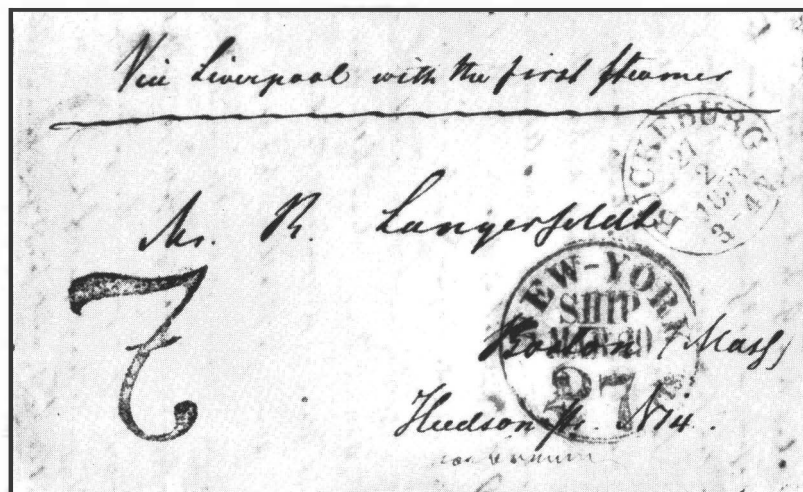 Via Liverpool with the first steamer
BÜCKEBURG
27
2
3-4N
Mr. R. Langerfeldt
NEW-YORK
SHIP
27
7
Boston (Mass)
Hudson str. N14.